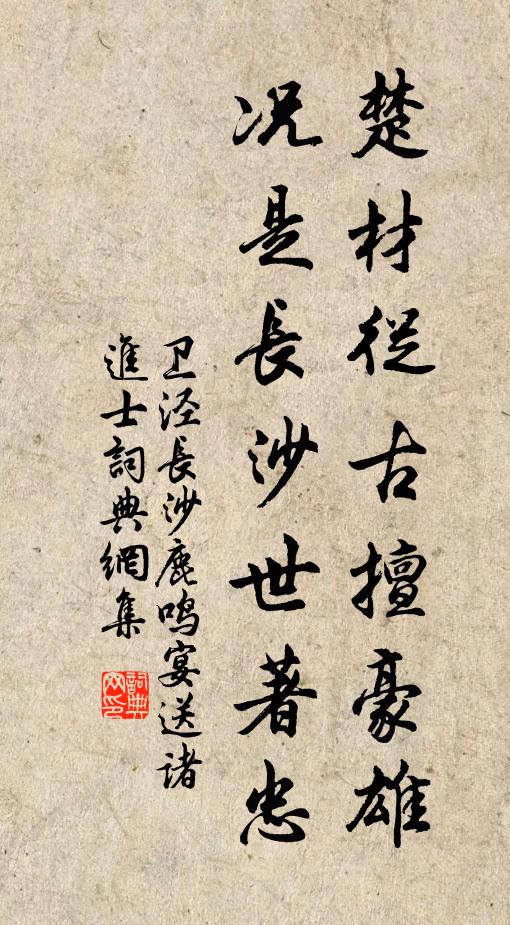 楚材從古擅豪雄
况是長沙世著忠
卫泾長沙鹿鸣宴送诸
進士詞典網集
詞典
网印